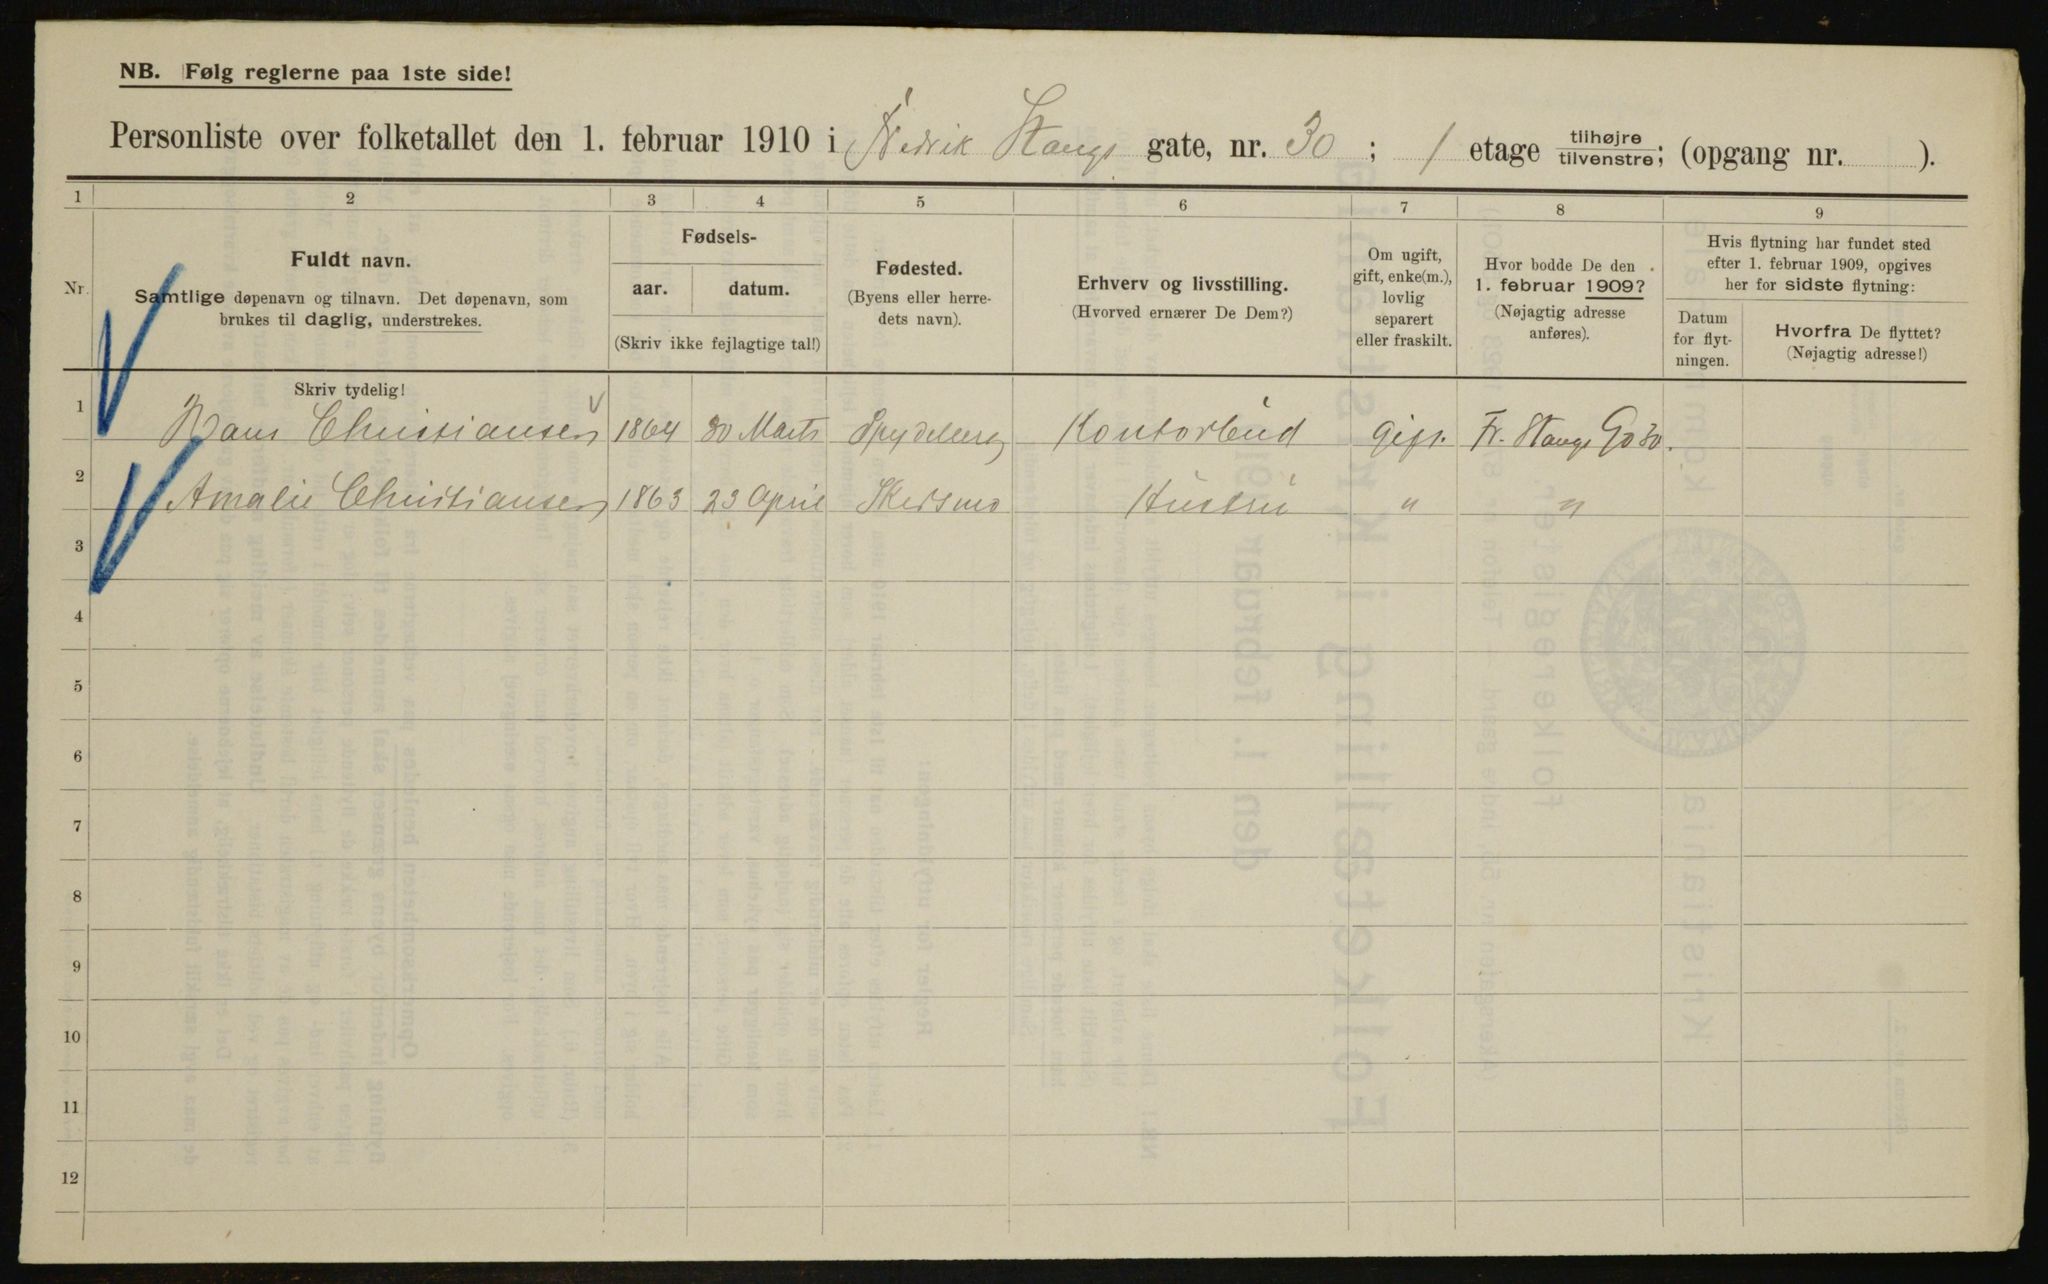 NB. Følg reglerne paa 1ste side!
Personliste over folketallet den 1. februar 1910 i Fredrik Stangs gate, nr. 30 ; 1 etage tilhøjre tilvenstre; (opgang nr. ).
1 2 3 4 5 6 7 8 9
Nr.
Fuldt navn.
Samtlige døpenavn og tilnavn. Det døpenavn, som
brukes til daglig, understrekes.
Fødsels-
aar. datum.
(Skriv ikke fejlagtige tal!)
Fødested.
(Byens eller herre-
dets navn).
Erhverv og livsstilling.
(Hvorved ernærer De Dem?)
Om ugift,
gift, enke(m.),
lovlig
separert
eller fraskilt.
Hvor bodde De den
1. februar 1909?
(Nøjagtig adresse
anføres).
Hvis flytning har fundet sted
efter 1. februar 1909, opgives
her for sidste flytning:
Datum
for flyt-
ningen.
Hvorfra De flyttet?
(Nøjagtig adresse!)
Skriv tydelig!
1 Hans Christiansen 1864 30 Marts Spydeberg Kontorbud gift. Fr. Stangs G 30.
2 Amalie Christiansen 1863 23 April Skedsmo Hustru " "
3
4
5
6
7
8
9
10
11
12